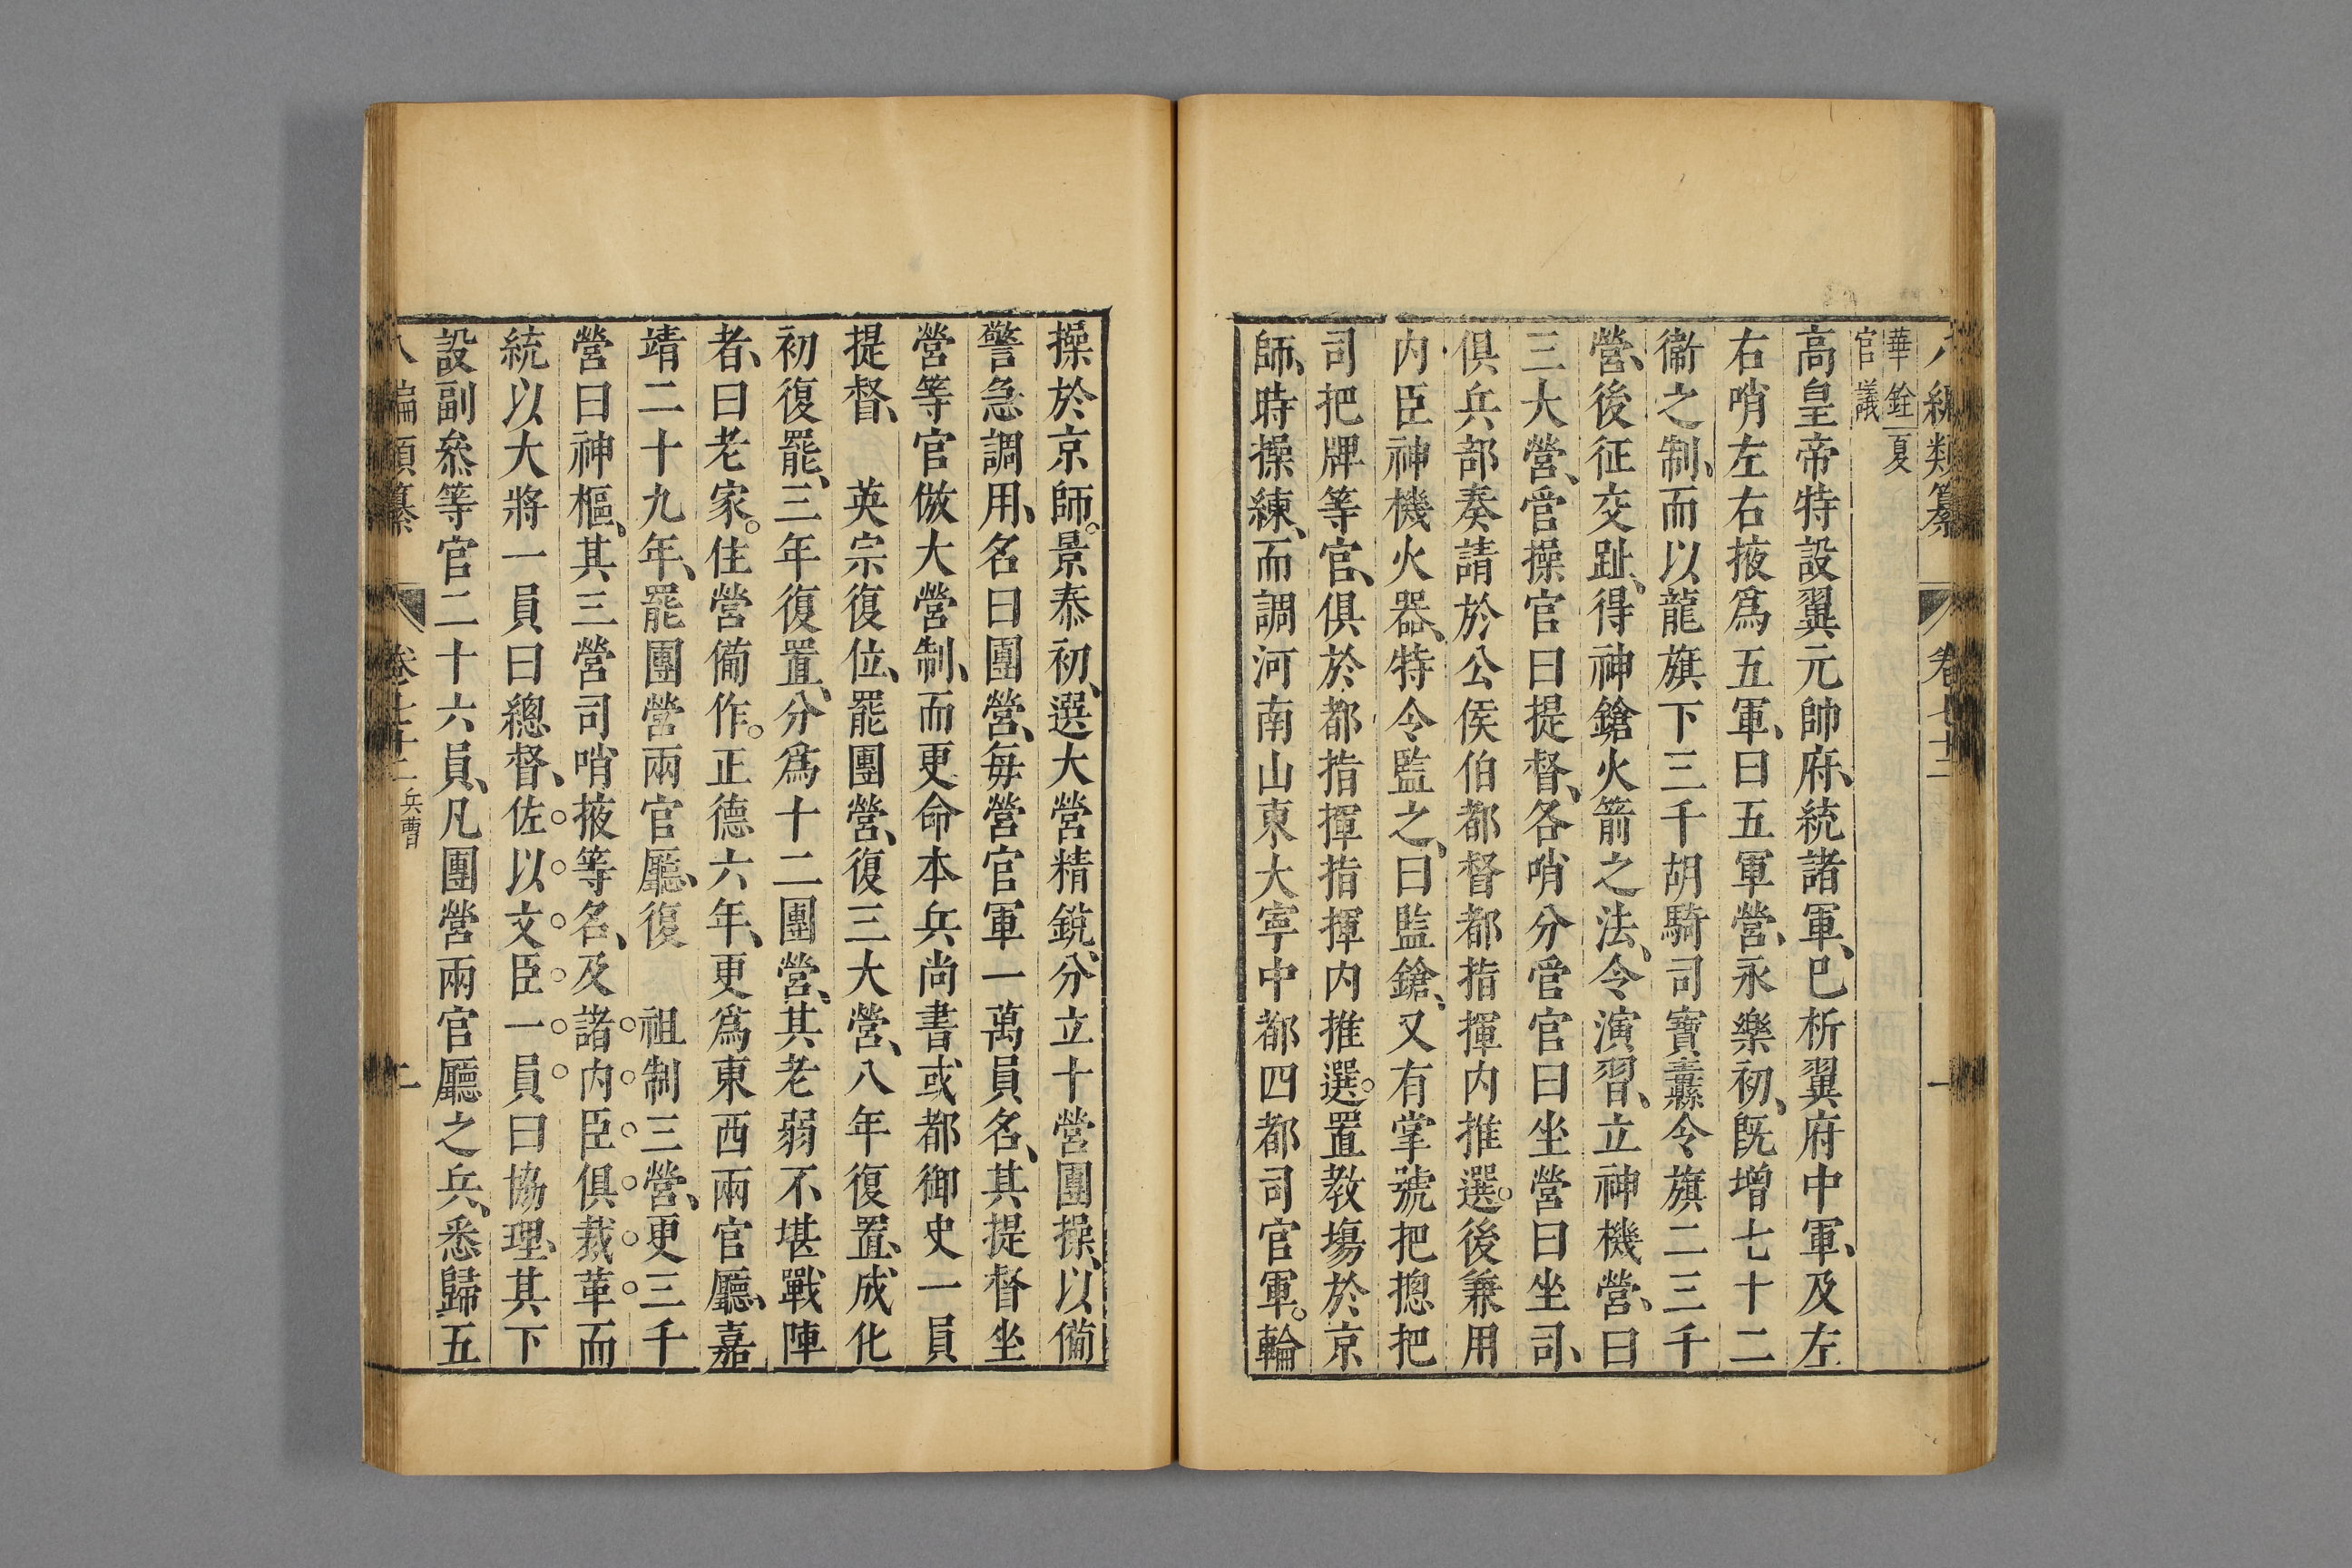 八編類纂 卷七十二 一
華銓夏
官議
高皇帝特設翼元帥府、統諸軍、已析翼府中軍、及左
右哨左右掖爲五軍、曰五軍營、永樂初、旣增七十二
衞之制、而以龍旗下三千胡騎司寶纛令旗二三千
營、後征交趾、得神鎗火箭之法、令演習、立神機營、曰
三大營、官操官曰提督、各哨分官官曰坐營曰坐司、
俱兵部奏請於公侯伯都督都指揮内推選。後兼用
内臣神機火器、特令監之、曰監鎗、又有掌號把摠把
司把牌等官、俱於都指揮指揮内推選。置教塲於京
師、時操練、而調河南山東大寧中都四都司官軍。輪
操於京師。景泰初、選大營精銳、分立十營團操、以備
警急調用、名曰團營、每營官軍一萬員名、其提督坐
營等官倣大營制、而更命本兵尚書或都御史一員
提督、 英宗復位、罷團營、復三大營、八年復置、成化
初復罷、三年復置、分爲十二團營、其老弱不堪戰陣
者、曰老家。住營備作。正德六年、更爲東西兩官廳、嘉
靖二十九年、罷團營兩官廳、復 祖制三營、更三千
營曰神樞、其三營司哨掖等名、及諸内臣俱裁革而
統以大將一員曰總督、佐以文臣一員曰協理、其下
設副叅等官二十六員、凡團營兩官廳之兵、悉歸五
八編類纂 卷七十二 兵曹 二